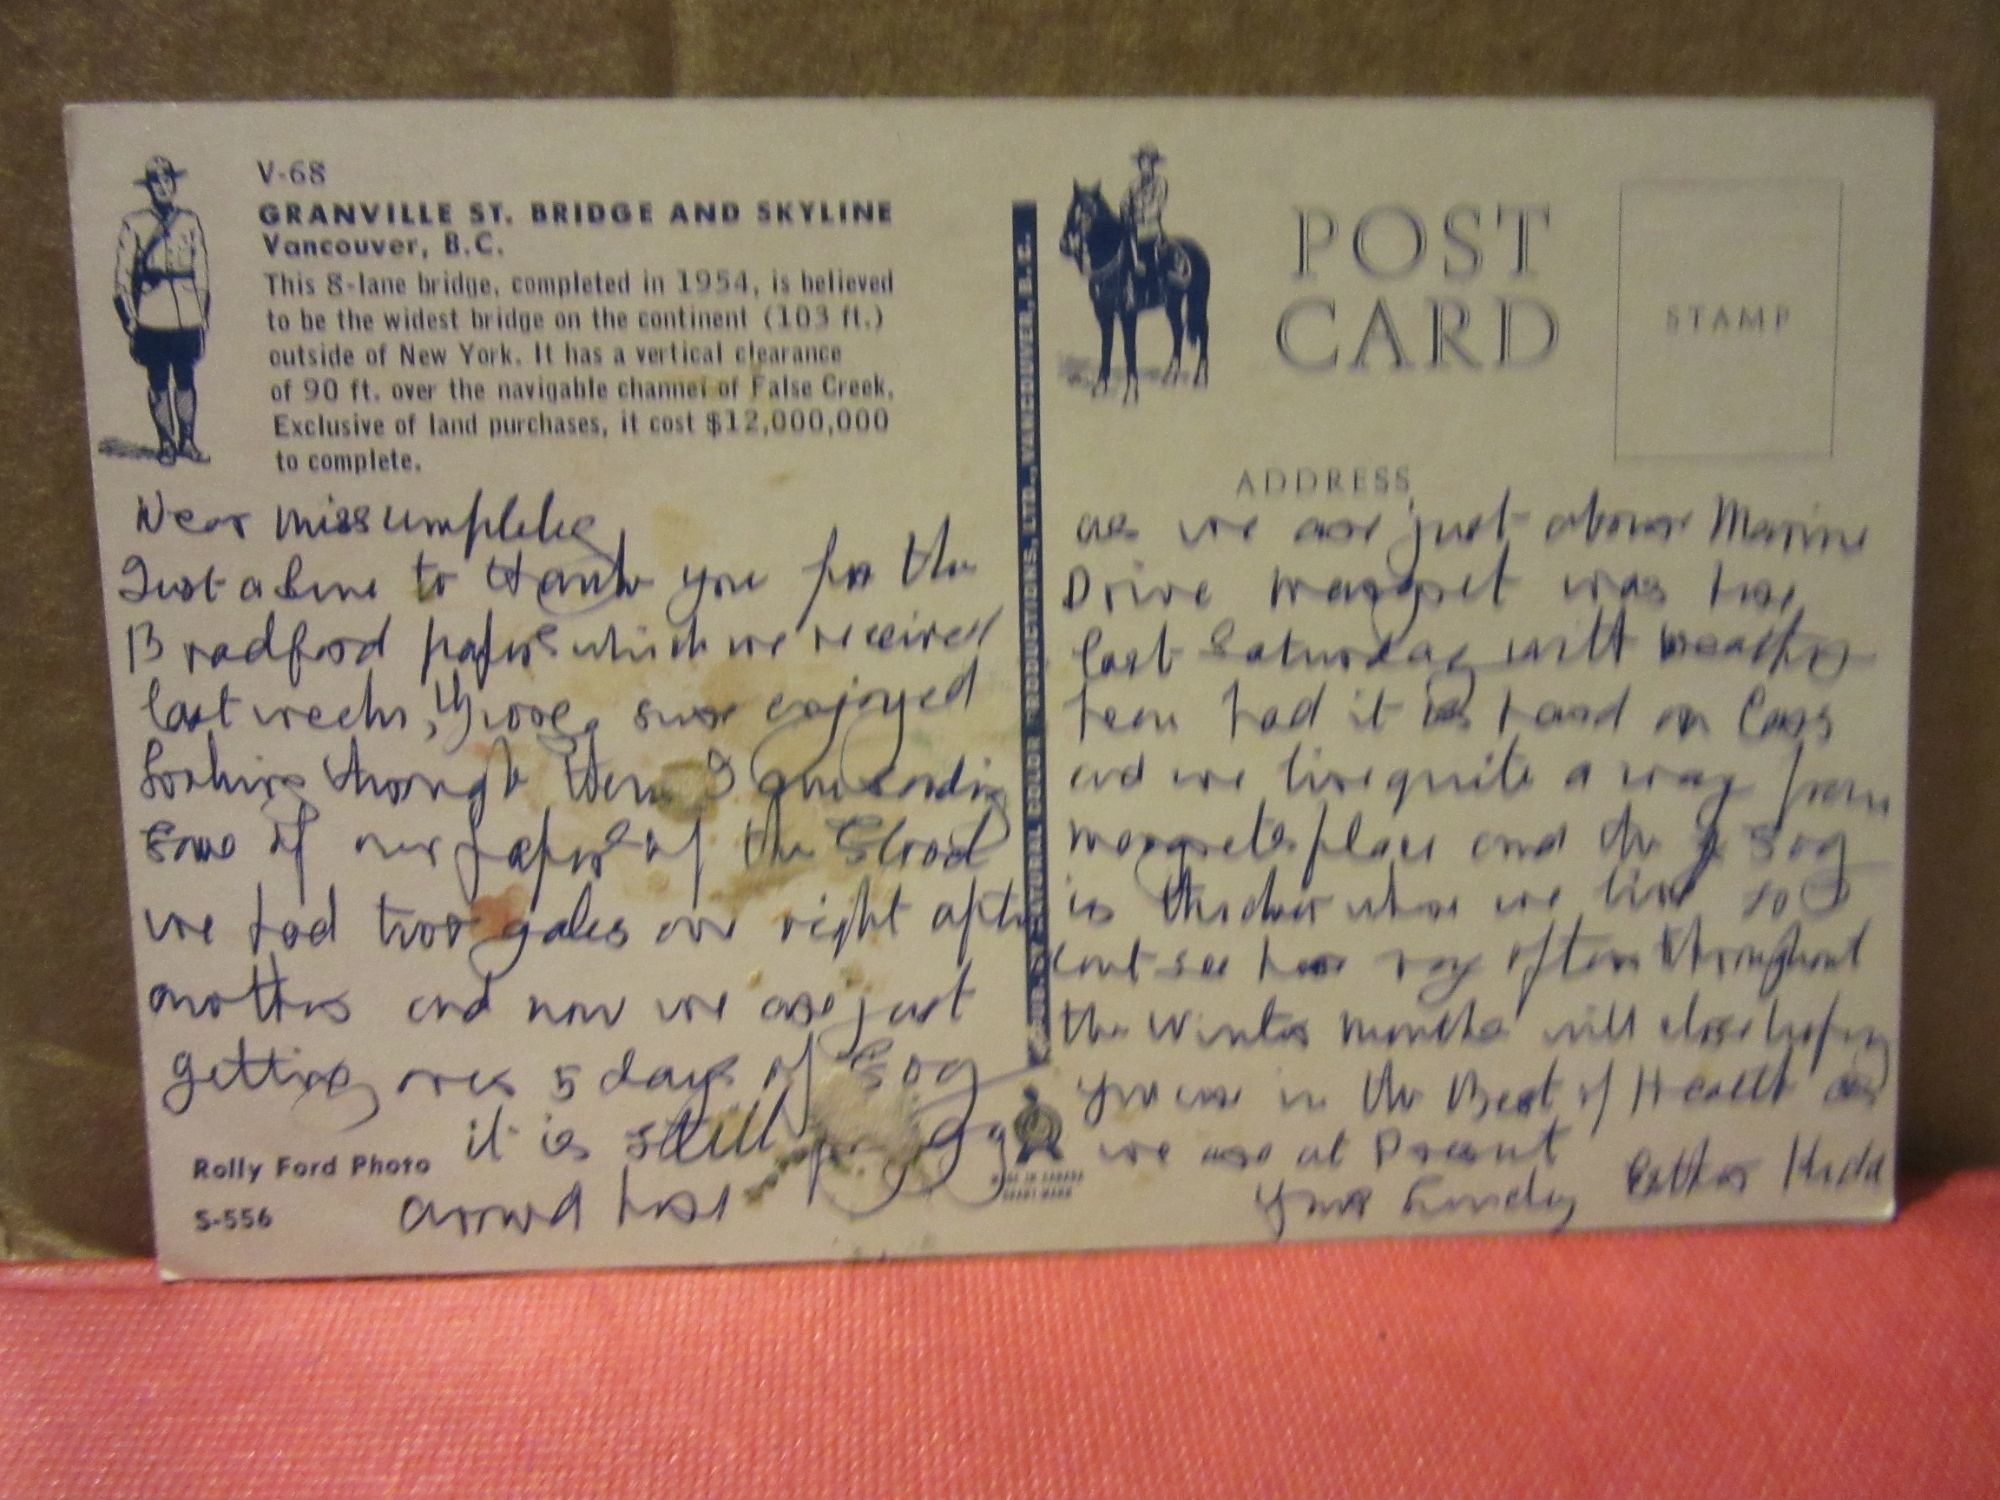 V-68
GRANVILLE ST. BRIDGE AND SKYLINE
Vancouver, B.C.
This 8-lane bridge, completed in 1954, is believed
to be the widest bridge on the continent (103 ft.)
outside of New York. It has a vertical clearance
of 90 ft. over the navigable channel of False Creek.
Exclusive of land purchases, it cost $12,000,000
to complete.
Dear Miss
Just a line to thank you for the
Bradford papers which we received
last week, sure enjoyed
looking through them I am sending
some of our papers of the
we had two gales one right after
another and now we are just
getting over 5 days of Fog
it is still foggy
around here
Rolly Ford Photo
S-556
NATURAL COLOR PRODUCTIONS, LTD., VANCOUVER, B.C.
MADE IN CANADA
POST
CARD
STAMP
ADDRESS
as we are just above Marine
Drive Margret was here
last Saturday with
had it hard on Cars
and we live quite a way from
Margrets place and the Fog
is thicker where we live so I
cant see her very often throughout
the Winter months will close hoping
you are in the Best of Health as
we are at Present
Yours Esther Kidd